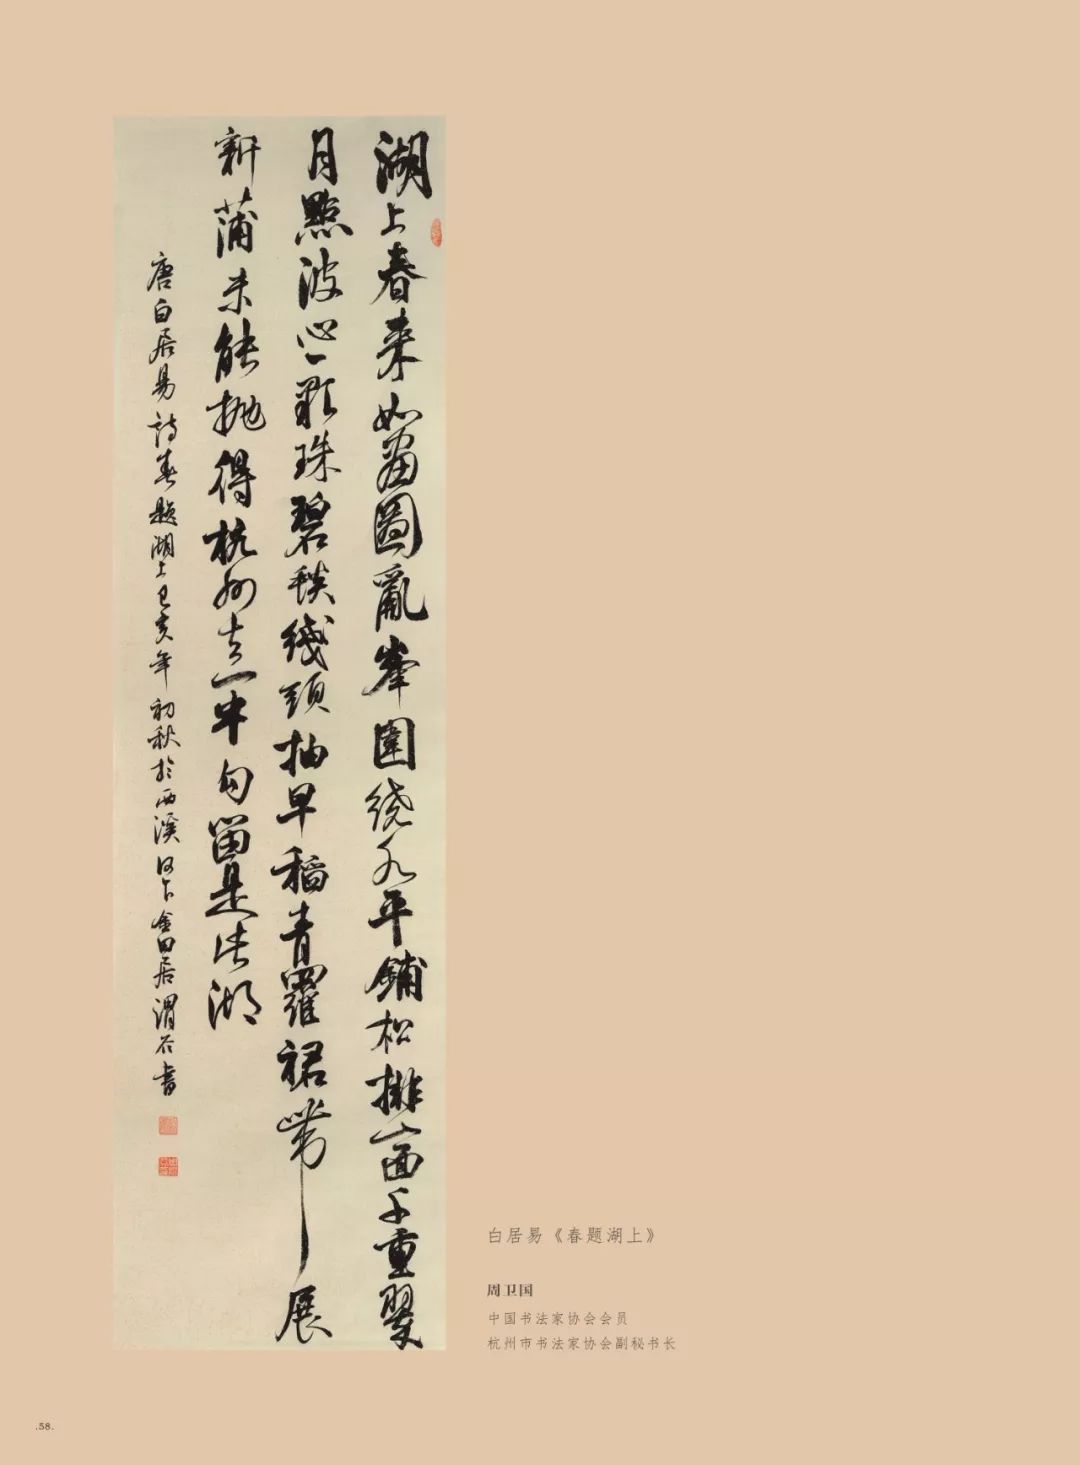 湖上春来如畫圖亂峯圍繞水平鋪松排山面千重翠
月點波心一顆珠碧毯綫頭抽早稻青羅裙帶展
新蒲未能抛得杭州去一半勾留是此湖
唐白居易詩春題湖上己亥年初秋於西溪河下居渭書
白居易《春题湖上》
周卫国
中国书法家协会会员
杭州市书法家协会副秘书长
.58.